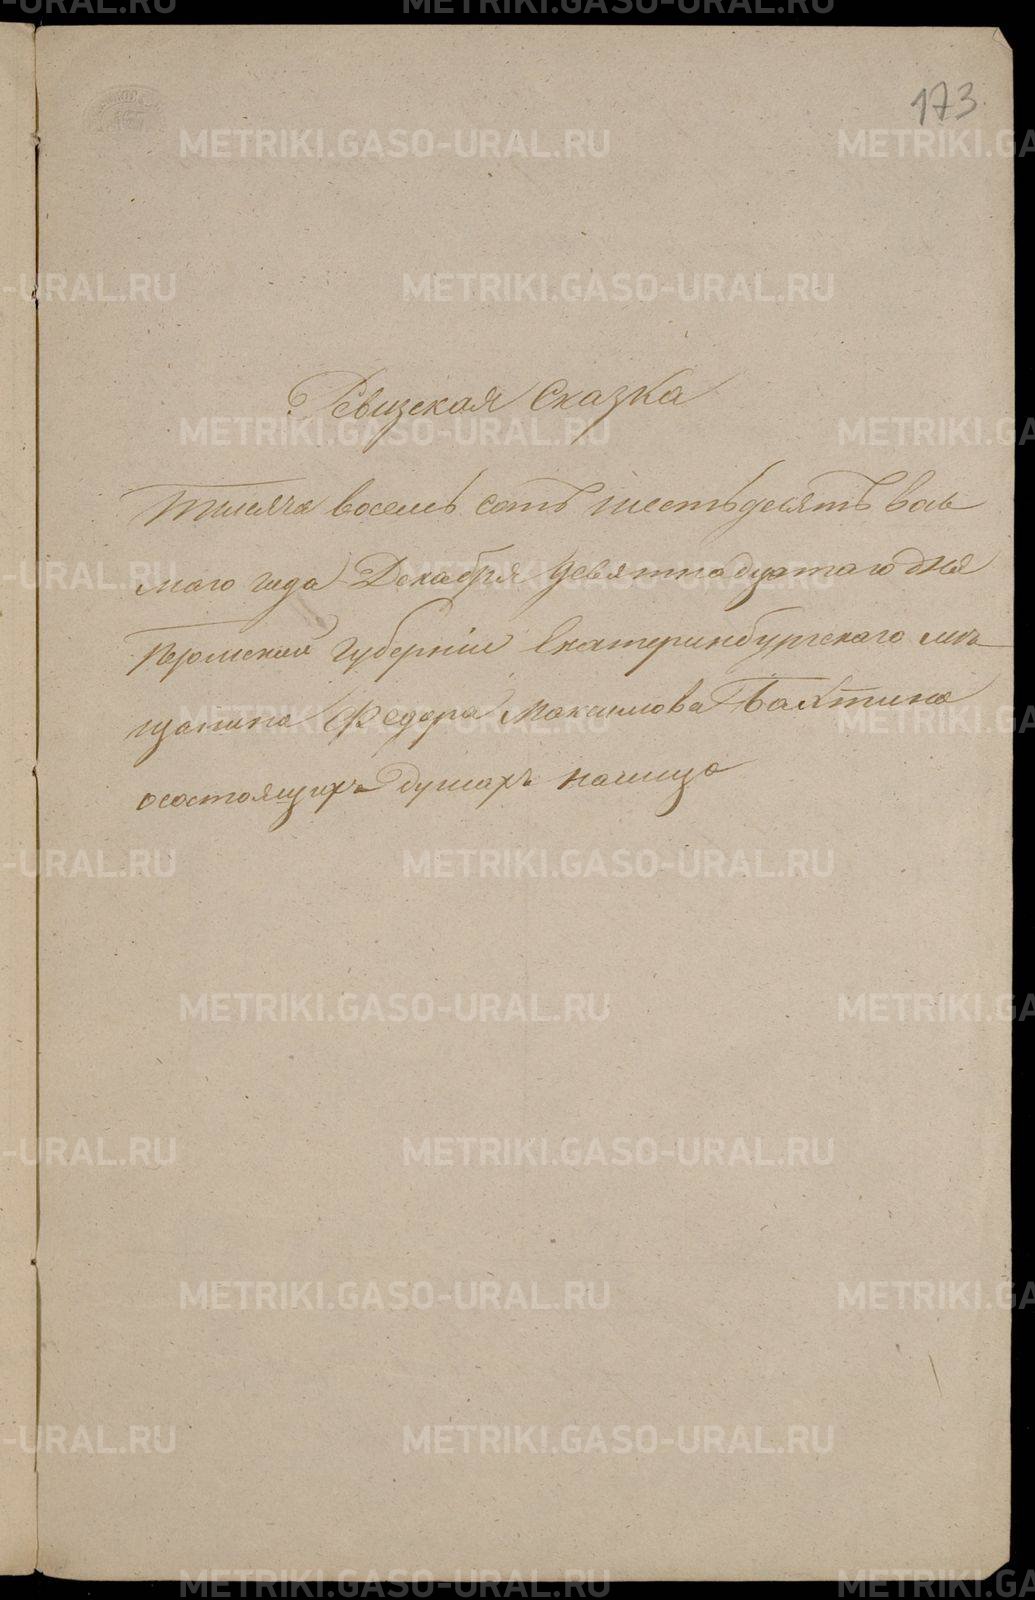 173.
Ревизская Сказка
Тысяча восемь сотъ шестьдесятъ вось
маго года Декабря девятнадцатаго дня
Пермской Губерніи Екатеринбургскаго мѣ
щанина Федора Максимова Бахтина
осостоящихъ душахъ налицо
METRIKI.GASO-URAL.RU